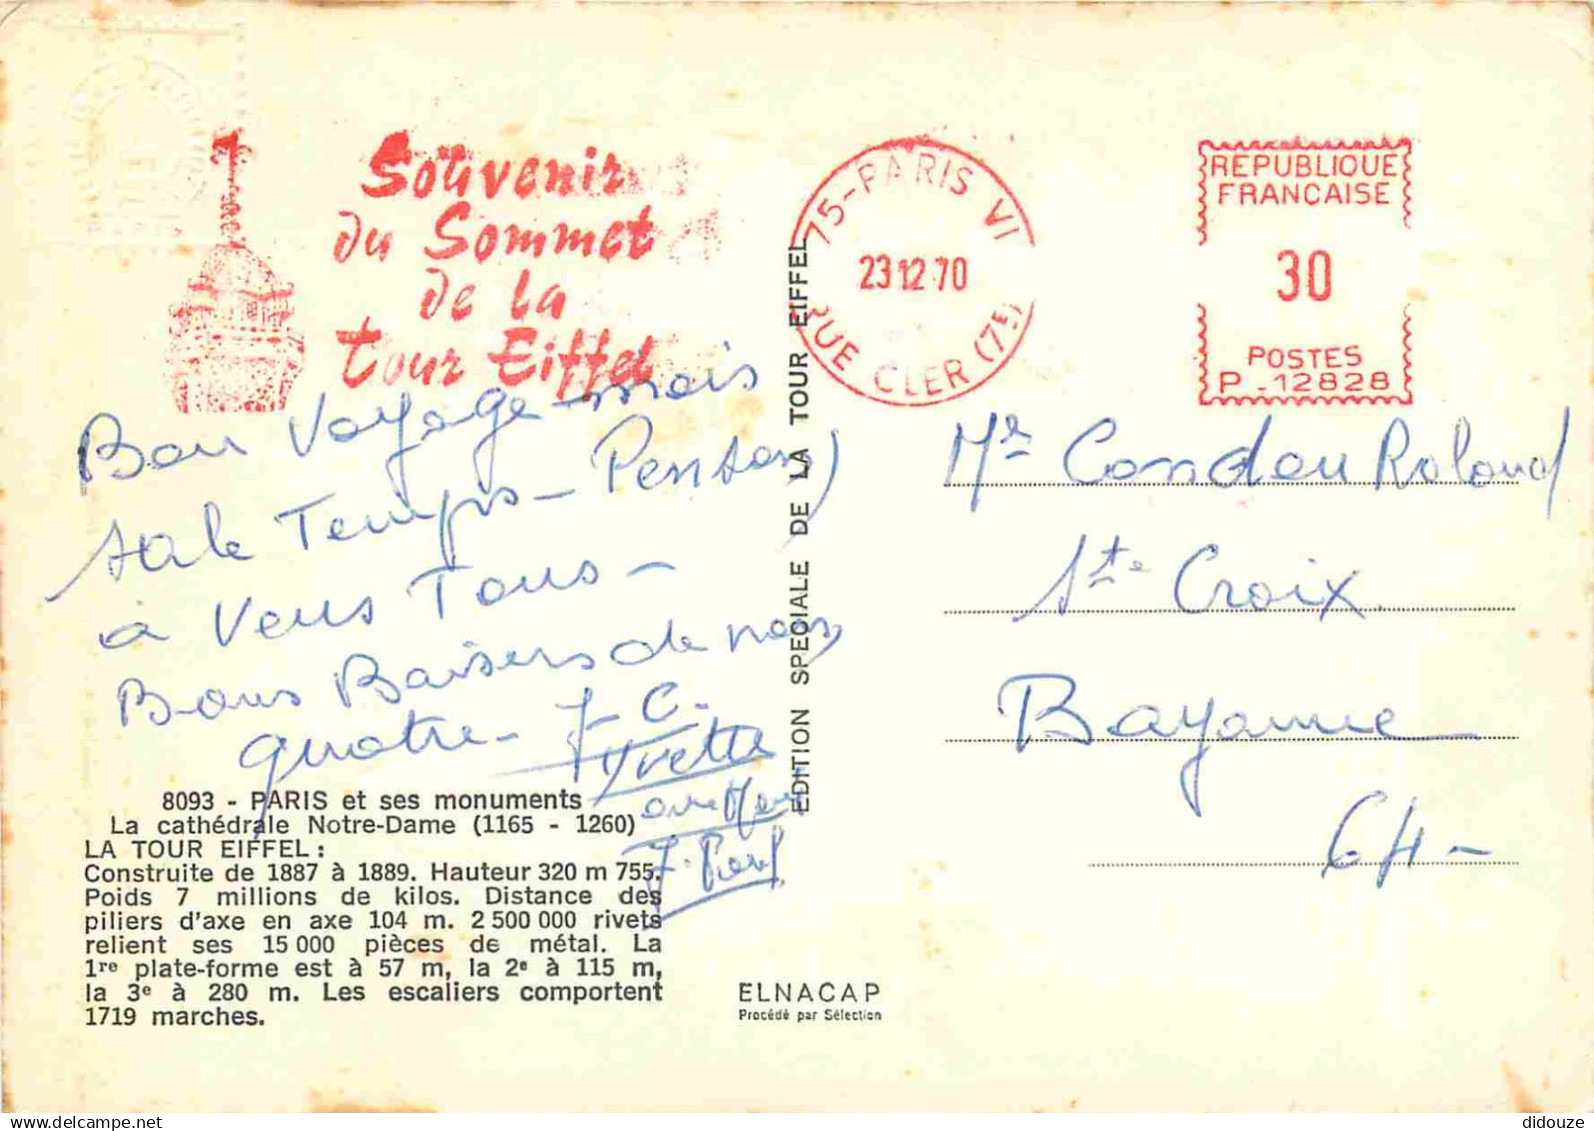 Souvenir
du Sommet
de la
tour Eiffel
75-PARIS VI
23 12 70
RUE CLER (75)
REPUBLIQUE
FRANCAISE
30
POSTES
P_12828
Bon Voyage mais
sale Temps - Pensons
à Vous Tous -
Bons Baisers de nous
quatre - J-C.
Yvette
J-Paul
Mr Condou Roland
Ste Croix
Bayonne
64-
EDITION SPECIALE DE LA TOUR EIFFEL
8093 - PARIS et ses monuments
La cathédrale Notre-Dame (1165 - 1260)
LA TOUR EIFFEL :
Construite de 1887 à 1889. Hauteur 320 m 755.
Poids 7 millions de kilos. Distance des
piliers d'axe en axe 104 m. 2 500 000 rivets
relient ses 15 000 pièces de métal. La
1re plate-forme est à 57 m, la 2e à 115 m,
la 3e à 280 m. Les escaliers comportent
1719 marches.
ELNACAP
Procédé par Sélection
didouze